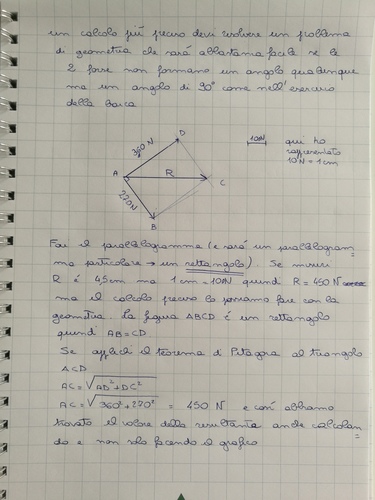 un calcolo più preciso devi risolvere un problema
di geometria che sarà abbastanza facile se le
2 forze non formano un angolo qualunque
ma un angolo di 90° come nell'esercizio
della barca
D
360 N
10N
qui ho
rappresentato
10N = 1cm
A
R
C
270N
B
Fai il parallelogramma (e sarà un parallelogram=
ma particolare → un rettangolo). Se misuri
R è 45cm ma 1cm = 10N quindi R = 450 N
ma il calcolo preciso lo possiamo fare con la
geometria. La figura ABCD è un rettangolo
quindi AB=CD
Se applichi il teorema di Pitagora al triangolo
ACD
AC = √AD²+DC²
AC = √360²+270² = 450 N e così abbiamo
trovato il valore della risultante anche calcolan=
do e non solo facendo il grafico